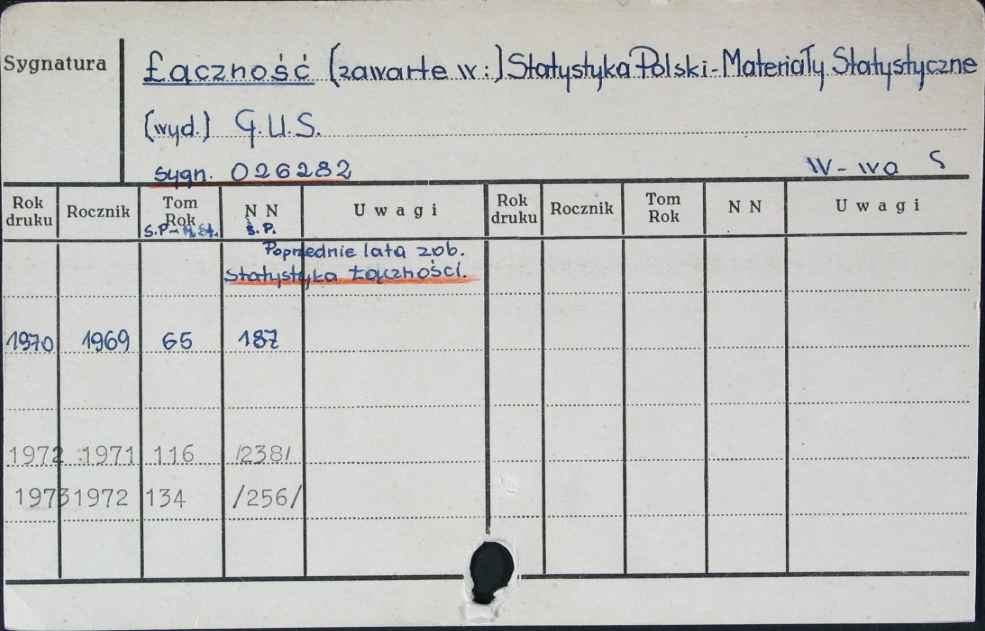 Sygnatura Łączność (zawarte w:) Statystyka Polski-Materiały Statystyczne
(wyd.) G.U.S.
sygn. 026282 W-wa S
Rok druku Rocznik Tom Rok N N U w a g i Rok druku Rocznik Tom Rok N N U w a g i
S.P-M.St. S.P.
Poprzednie lata zob.
Statystyka Łączności.
1970 1969 65 187
1972 1971 116 /238/
1973 1972 134 /256/